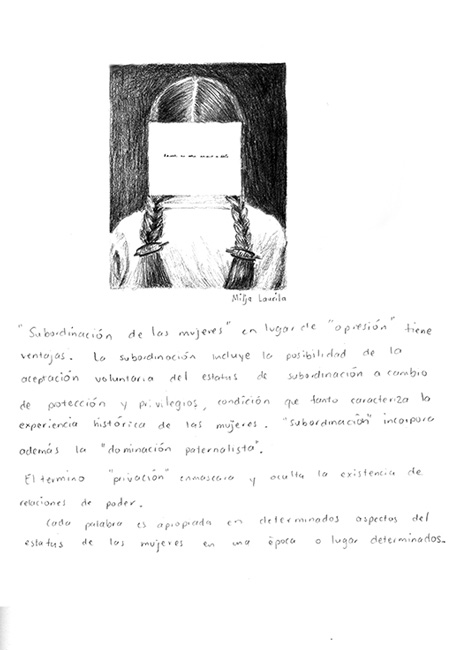 Milja Laurila
"Subordinación de las mujeres" en lugar de "opresión" tiene
ventajas. La subordinación incluye la posibilidad de la
aceptación voluntaria del estatus de subordinación a cambio
de potección y privilegios, condición que tanto caracteriza la
experiencia histórica de las mujeres. "Subordinación" incorpora
además la "dominación paternalista".
El termino "privación" enmascara y oculta la existencia de
relaciones de poder.
Cada palabra es apropiada en determinados aspectos del
estatus de las mujeres en una época o lugar determinados.